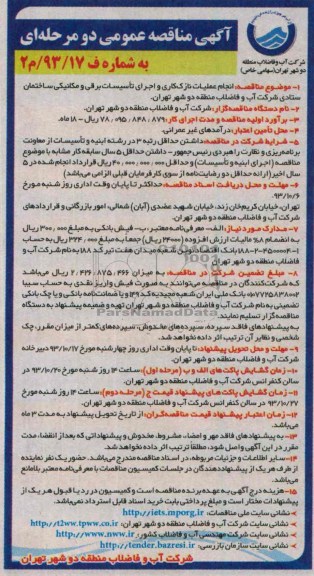 شرکت آب و فاضلاب منطقه
دو شهر تهران (سهامی خاص)
آگهی مناقصه عمومی دو مرحله‌ای
به شماره ف ۹۳/۱۷/م۲
۱- موضوع مناقصه: انجام عملیات نازک‌کاری و اجرای تأسیسات برقی و مکانیکی ساختمان
ستادی شرکت آب و فاضلاب منطقه دو شهر تهران.
۲- نام دستگاه مناقصه‌گزار: شرکت آب و فاضلاب منطقه دو شهر تهران.
۳- برآورد اولیه مناقصه و مدت اجرای کار: ۷۸,۰۹۵,۸۴۸,۸۷۹ ریال – ۱۸ ماه.
۴- محل تأمین اعتبار: درآمدهای غیر عمرانی.
۵- شرایط شرکت در مناقصه: داشتن حداقل رتبه ۳ در رشته ابنیه و تأسیسات از معاونت
برنامه‌ریزی و نظارت راهبردی رئیس جمهور – داشتن حداقل ۵ سال سابقه کار مشابه با موضوع
مناقصه (اجرای ابنیه و تأسیسات) و حداقل ۴۰,۰۰۰,۰۰۰,۰۰۰ ریال قرارداد انجام شده در ۵
سال اخیر (ارائه حداقل دو رضایتنامه از سوی کارفرمایان قبلی الزامی می‌باشد)
۶- مهلت و محل دریافت اسناد مناقصه: حداکثر تا پایان وقت اداری روز شنبه مورخ
۹۳/۱۰/۶
تهران، خیابان کریم‌خان زند، خیابان شهید عضدی (آبان) شمالی، امور بازرگانی و قراردادهای
شرکت آب و فاضلاب منطقه دو شهر تهران.
۷- مدارک مورد نیاز: الف- معرفی‌نامه معتبر، ب- فیش بانکی به مبلغ ۳۰۰,۰۰۰ ریال
به انضمام ۸% مالیات ارزش افزوده (۲۴۰۰۰ ریال) جمعا به مبلغ ۳۲۴,۰۰۰ ریال به حساب
بانک اقتصاد نوین شعبه میدان هفت تیر کد ۱۸۸ به نام شرکت آب و
فاضلاب منطقه دو شهر تهران
۸- مبلغ تضمین شرکت در مناقصه: به میزان ۲,۴۲۶,۸۷۵,۴۶۶ ریال می‌باشد
که شرکت‌کنندگان در مناقصه می‌توانند به صورت فیش واریز نقدی به حساب سیبا
بانک ملی ایران شعبه مجیدیه کد ۱۳۹ و یا ضمانت‌نامه بانکی و یا چک بانکی
تضمینی به نام شرکت آب و فاضلاب منطقه دو شهر تهران تهیه و ضمیمه پیشنهاد به دستگاه
مناقصه‌گزار تسلیم نمایند.
به پیشنهادهای فاقد سپرده، سپرده‌های مخدوش، سپرده‌های کمتر از میزان مقرر، چک
شخصی و نظایر آن ترتیب اثر داده نخواهد شد.
۹- مهلت و محل تحویل پیشنهاد: تا پایان وقت اداری روز چهارشنبه مورخ ۹۳/۱۰/۱۷ دبیرخانه
شرکت آب و فاضلاب منطقه دو شهر تهران.
۱۰- زمان گشایش پاکت‌های الف و ب (مرحله اول): ساعت ۱۴ روز شنبه مورخ ۹۳/۱۰/۲۰ در
سالن کنفرانس شرکت آب و فاضلاب منطقه دو شهر تهران.
۱۱- زمان گشایش پاکت‌های پیشنهاد قیمت ج (مرحله دوم): ساعت ۱۴ روز شنبه مورخ
۹۳/۱۰/۲۷ در سالن کنفرانس شرکت آب و فاضلاب منطقه دو شهر تهران.
۱۲- زمان اعتبار پیشنهاد قیمت مناقصه‌گران: از تاریخ تحویل پیشنهاد به مدت ۳ ماه
می‌باشد.
۱۳- به پیشنهادهای فاقد مهر و امضاء، مشروط، مخدوش و پیشنهاداتی که بعد از انقضاء مدت
مقرر در این آگهی واصل شود، مطلقا ترتیب اثر داده نخواهد شد.
۱۴- سایر اطلاعات و جزئیات مربوطه، در اسناد مناقصه مندرج می‌باشد. حضور یک نفر نماینده
از طرف هر یک از پیشنهاددهندگان در جلسات کمیسیون مناقصات با معرفی‌نامه معتبر بلامانع
می‌باشد.
۱۵- هزینه درج آگهی به عهده برنده مناقصه است و کمیسیون در رد یا قبول هر یک از
پیشنهادات مختار است و مبلغ پرداختی بابت خرید اسناد قابل استرداد نمی‌باشد.
نشانی سایت ملی مناقصات: http://iets.mporg.ir
نشانی سایت شرکت آب و فاضلاب منطقه دو شهر تهران: http://t2ww.tpww.co.ir
نشانی سایت شرکت مهندسی آب و فاضلاب کشور: http://www.nww.ir
نشانی سایت سازمان بازرسی: http://tender.bazresi.ir
شرکت آب و فاضلاب منطقه دو شهر تهران
ParsNamadData